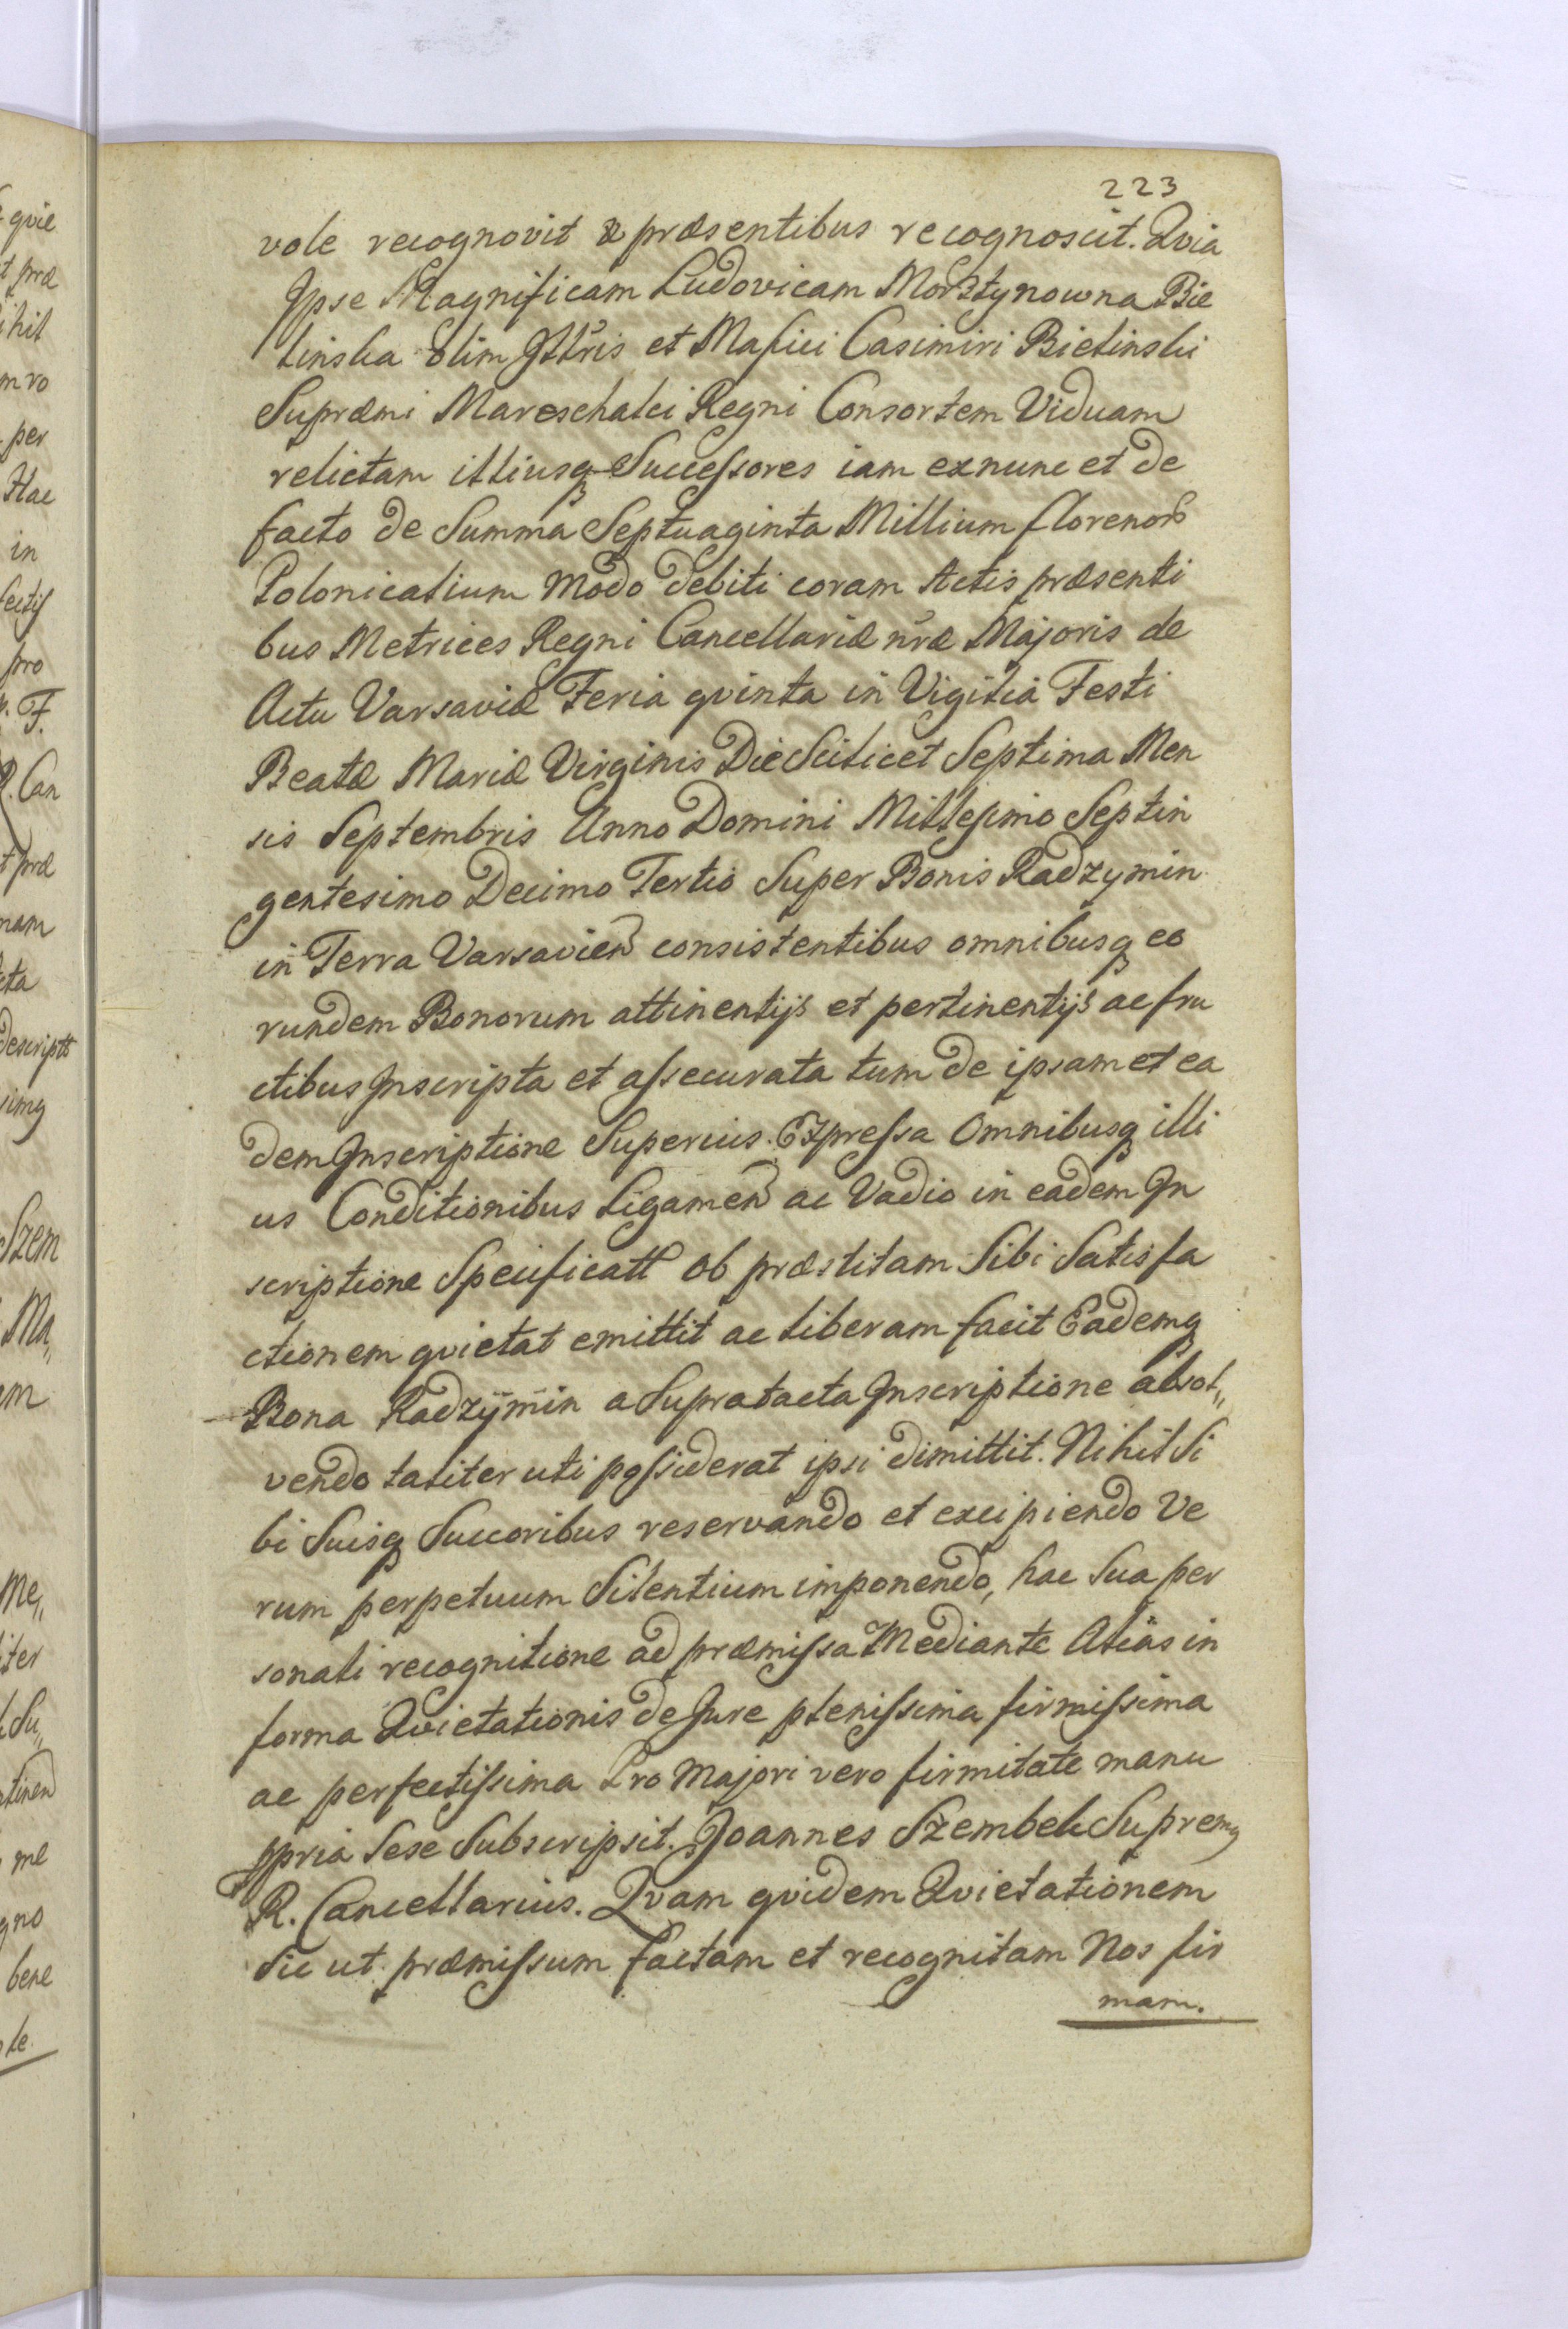 223
vole recognovit & præsentibus recognoscit. Qvia
Ipse Magnificam Ludovicam Morsztynowna Bie
linska olim Illris et Mafici Casimiri Bielinski
Supræmi Mareschalci Regni Consortem Viduam
relictam illiusq Successores iam exnunc et de
facto de Summa Septuaginta Millium florenor
Polonicalium Modo debiti coram Actis præsenti
bus Metrices Regni Cancellariæ nræ Majoris de
Actu Varsaviæ Feria qvinta in Vigilia Festi
Beatæ Mariæ Virginis Die Scilicet Septima Men
sis Septembris Anno Domini Millesimo Septin
gentesimo Decimo Tertio Super Bonis Radzymin
in Terra Varsavien consistentibus omnibusq eo
rundem Bonorum attinentijs et pertinentijs ac fru
ctibus Inscripta et assecurata tum de ipsamet ea
dem Inscriptione Superius Expressa Omnibusq illi
us Conditionibus ligamen ac Vadio in eadem In
scriptione Specificatt ob præstitam Sibi Satisfa
ctionem qvietat emittit ac liberam facit Eademq
Bona Radzymin a Supratacta Inscriptione absol„
vendo taliter uti possiderat ipsi dimittit. Nihil Si
bi Suisq Succoribus reservando et excipiendo Ve
rum perpetuum Silentium imponendo, hac Sua per
sonali recognitione ad præmissa Mediante Alias in
forma Qvietationis de Jure plenissima firmissima
ac perfectissima Pro Majori vero firmitate manu
ppria Sese Subscripsit. Joannes Szembek Supremg
R. Cancellarius. Qvam qvidem Qvietationem
Sic ut præmissum factam et recognitam Nos fir
mam.